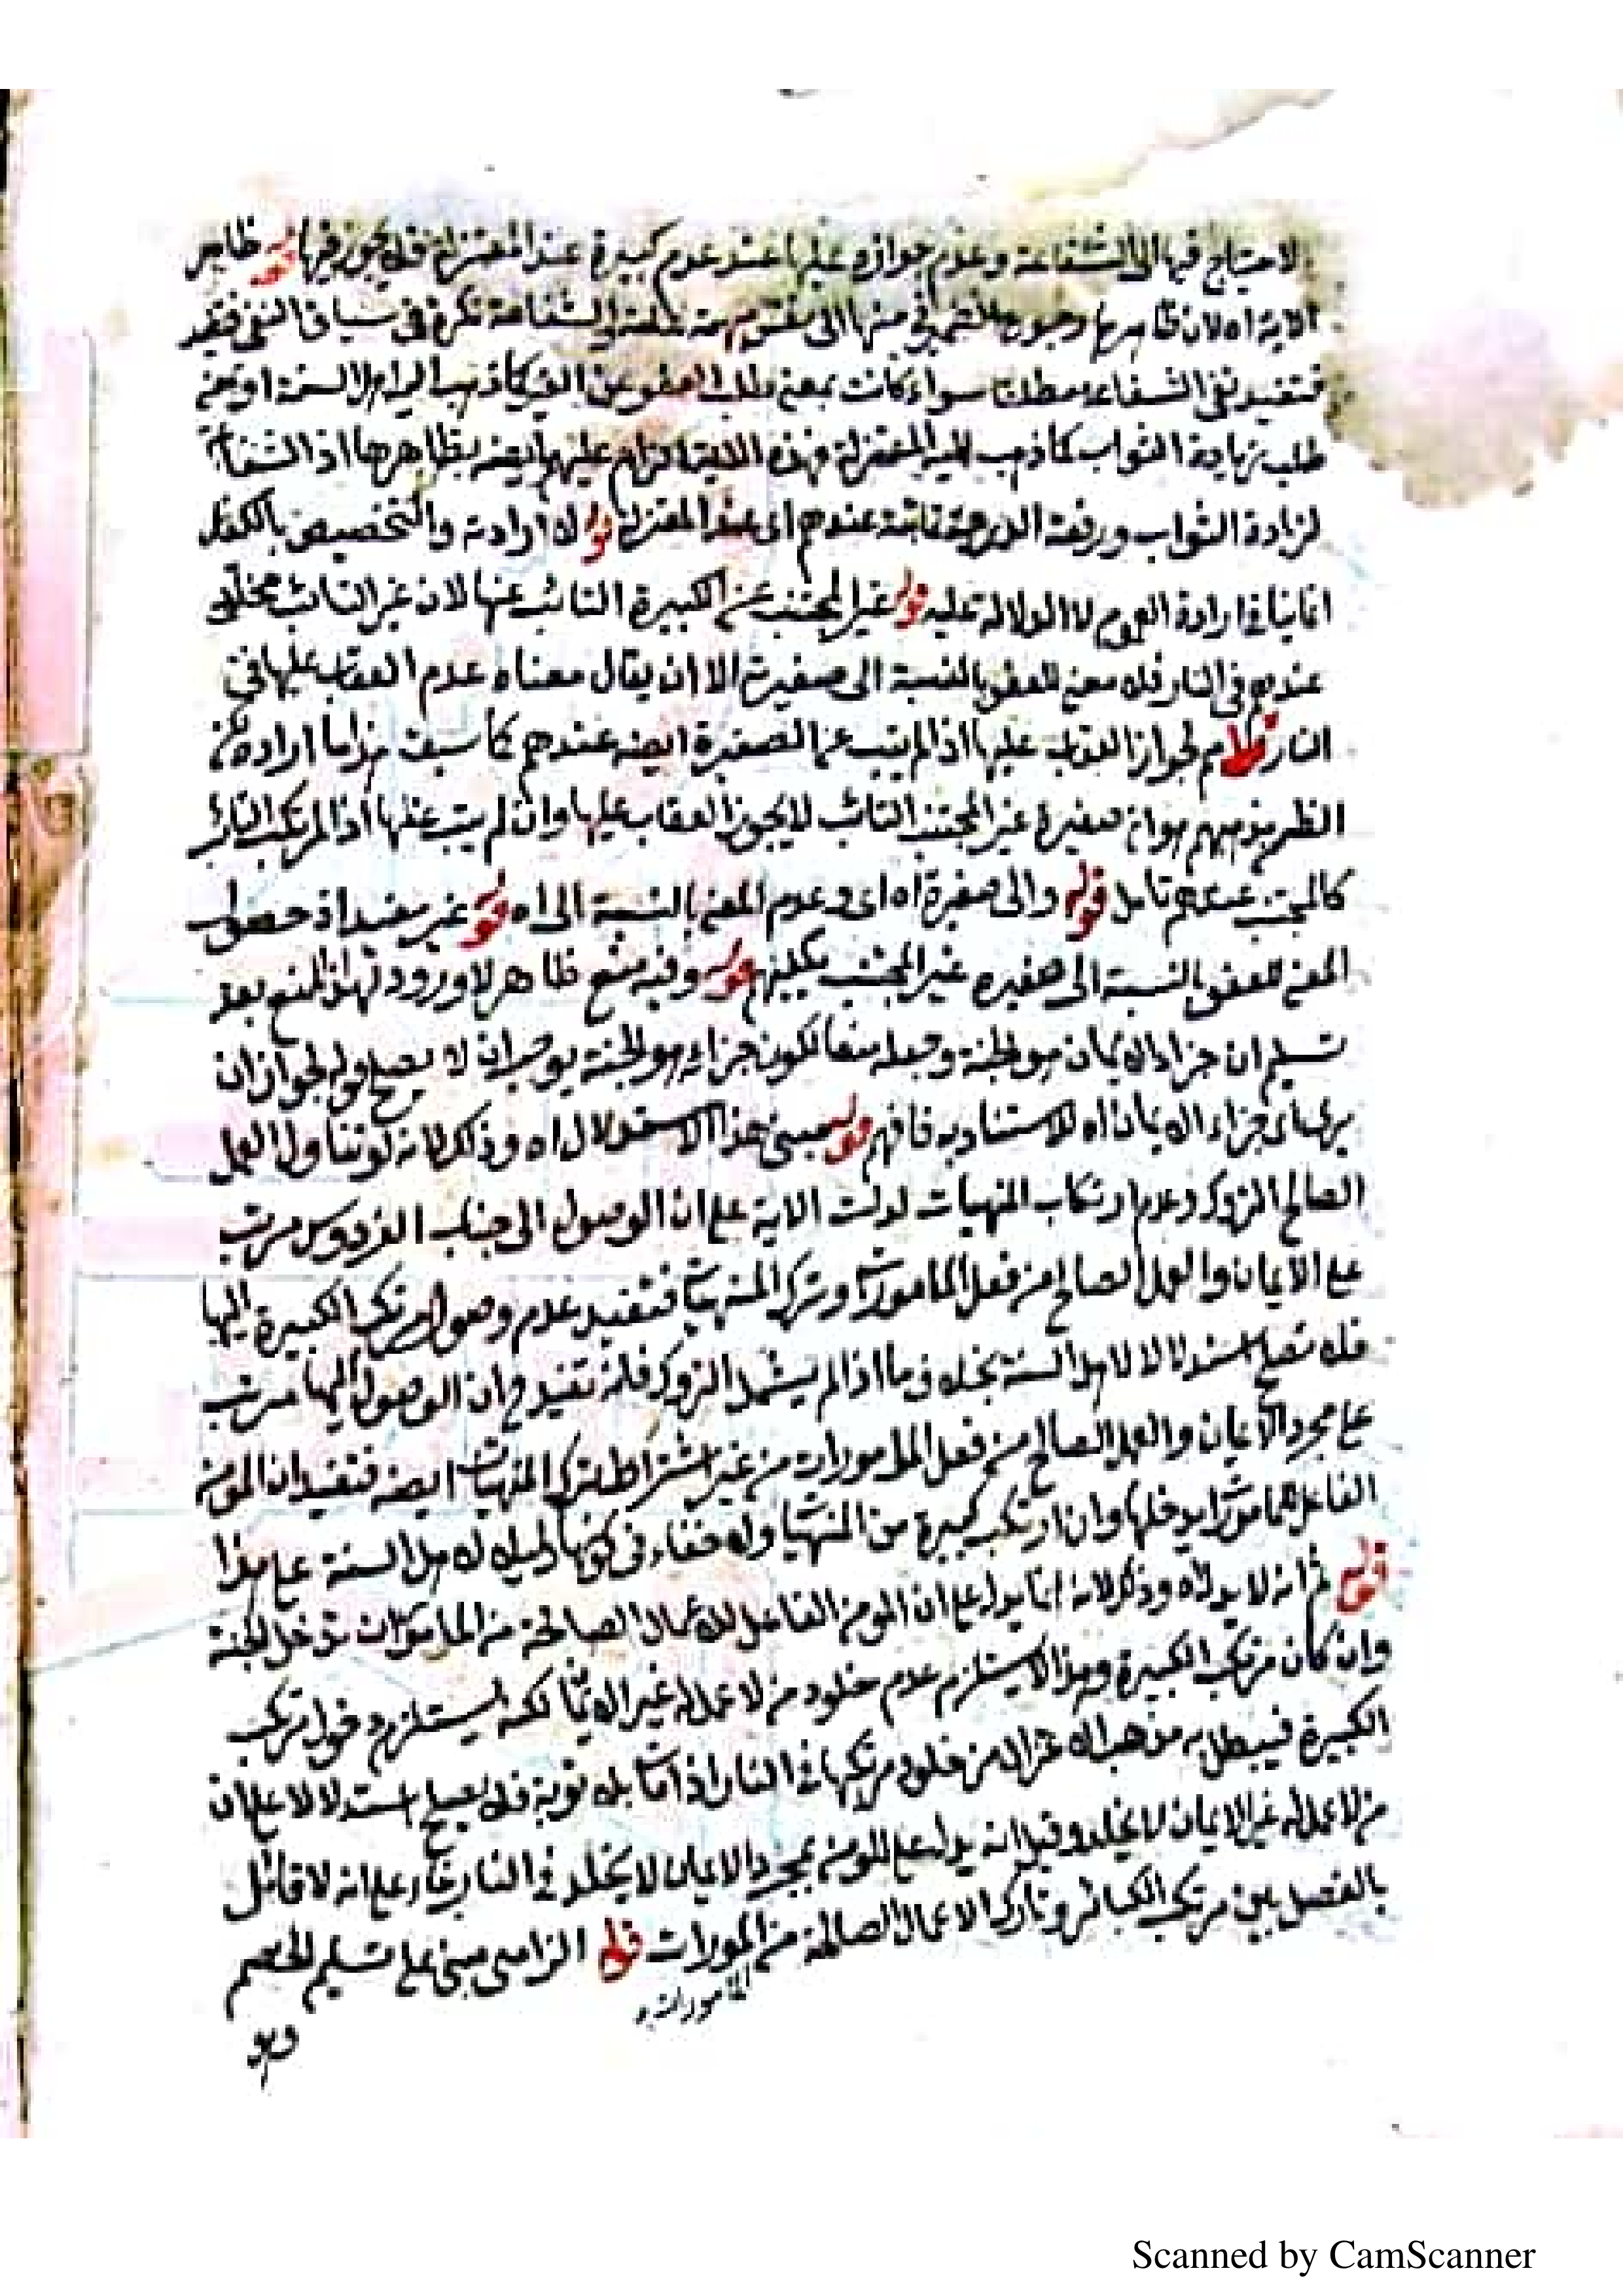 الاحتياج فيها الى الشفاعة وعدم جوازه عليها عند عدم كبيرة عند المعتزلة فله يجوز فيها قوله ظاهر
الاية اه لان ضمير منها الى نفس والشفاعة نكرة في سياق النفي
فتفيد نفى الشفاعة مطلقا سواء كانت بمعنى طلب العفو عن الغير كما ذهب اليه اهل السنة او بمعنى
طلب زيادة الثواب كما ذهب اليه المعتزلة فهذه الاية الزام عليهم ايضه بظاهرها اذ الشفاعة
لزيادة الثواب ورفعة الدرجة ثابتة عندهم اى عند المعتزلة قوله ارادته والتخصيص بالكفار
انما ينافى ارادة العموم لا الدلالة عليه قوله غير المجتنب عن الكبيرة التائب عنها لان غير التائب مخلد
عندهم فى النار فله معنى للعفو بالنسبة الى صغيرته الا ان يقال معناه عدم العقاب عليها فى
النار لجواز العقاب عليها اذا لم يتب عن الصغيرة ايضه عندهم كما سبق هذا ما اراده
الظ مذهبهم هو ان صغيرة غير المجتنب التائب لا يجوز العقاب عليها وان لم يتب عنها اذ المرتكب التائب
كالمجتنب عندهم تامل قوله والى صغيرة اه اى وعدم المعنى بالنسبة الى اه قوله غير مفيد اذ حصل
المعنى للعفو بالنسبة الى صغيره غير المجتنب يكفيهم قوله وفيه منع ظاهر لا ورود لهذا المنع بعد
تسليم ان جزاء الايمان هو الجنة وجعله منعا لكون جزائه هو الجنة يوجب ان لا يصح قوله لجواز ان
يرى اى جزاء الايمان اه لاستناد به فافهم قوله مبنى هذا الاستدلال اه وذلك لانه لو تناول العمل
الصالح التروك وعدم ارتكاب المنهيات لدلت الاية على ان الوصول الى جنات الفردوس مرتب
على الايمان والعمل الصالح من فعل المامورات وترك المنهيات فتفيد عدم وصول مرتكب الكبيرة اليها
فله تصلح استدلالا لاهل السنة بخلاف ما اذا لم يشمل التروك فانه تفيد ح ان الوصول اليها مرتب
على مجرد الايمان والعمل الصالح من فعل المامورات من غير اشتراط ترك المنهيات ايضه فتفيد ان المؤمن
الفاعل للمامورات يدخلها وان ارتكب كبيرة من المنهيات وله خفاء فى كونها دليله لاهل السنة على هذا
قوله ثم انه لا يدل اه وذلك لانه انما يدل على ان المومن الفاعل للاعمال الصالحة من المامورات يدخل الجنة
وان كان مرتكب الكبيرة وهذا لا يستلزم عدم خلود من لا عمل له غير الايمان لكنه يستلزم دخول مرتكب
الكبيرة فيبطل به مذهب الاعتزال من خلود مرتكبها فى النار اذا مات بله توبة فله يصلح استدلالا على ان
من لا عمل له غير الايمان لا يخلد وقيل انه يدل على المومن بمجرد الايمان لا يخلد فى النار بناء على انه لا قائل
بالفصل بين مرتكب الكبائر وتارك الاعمال الصالحة من المورات قوله الزامى مبنى على تسليم الخصم
المامورات
وهو
Scanned by CamScanner